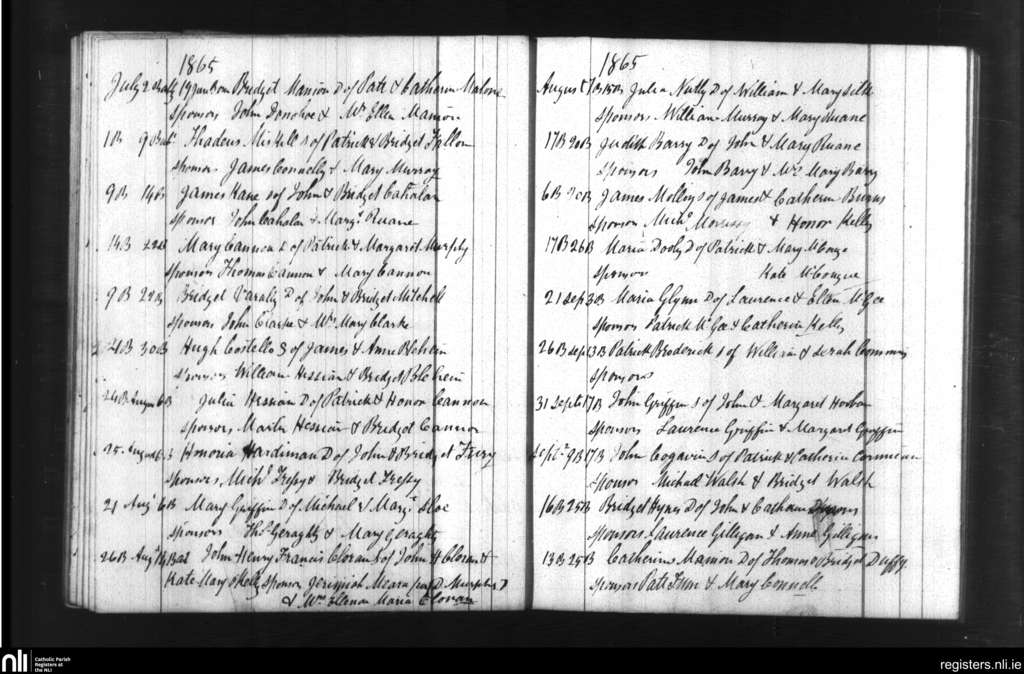 1865
July 2 19 Jun Born Bridget Mannion D of Patt & Catherin Malone
Sponsors John Donohoe & Mrs Ellen Mannion
1B 9 Thadeus Mitchell S of Patrick & Bridget Fallon
Sponsors James Connelly & Mary Murray
9B 14 James Kane S of John & Bridget Cahalan
Sponsors John Cahalan & Margt Ruane
14B 22B Mary Cannon D of Patrick & Margaret Murphy
Sponsors Thomas Cannon & Mary Cannon
9B 22B Bridget D of John & Bridget Mitchell
Sponsors John Clarke & Mrs Mary Clarke
24B 30B Hugh Costello S of James & Anne Blehein
Sponsors William Hession & Bridget Blehein
24B August 6B Julia Hession D of Patrick & Honor Cannon
Sponsors Martin Hession & Bridget Cannon
25 August 6 Honoria Hardiman D of John & Bridget
Sponsors Michl & Bridget
21 Aug 6B Mary Griffin D of Michael & Margt
Sponsors Thos Geraghty & Mary Geraghty
26B Augt John Henry Francis Cloran S of John H Cloran &
Kate Mary Skelly Sponsor Jeremiah Meara
& Mrs Maria Cloran
1865
August Julia Nutly D of William & Mary
Sponsors William Murray & Mary Ruane
17B 20B Judith Barry D of John & Mary Ruane
Sponsors John Barry & Mrs Mary Barry
6B 20B James S of James & Catherin Burns
Sponsor Michl & Honor Kelly
17B 26B Maria Dooly D of Patrick & Mary
Sponsor Kate
21 Sept 3B Maria Glynn D of Laurence & Ellen McGee
Sponsors Patrick McGee & Catherin Kelly
26B Sept 3B Patrick Broderick S of William & Commins
Sponsors
31 Sept 17B John Griffin S of John & Margaret
Sponsors Laurence Griffin & Margaret Griffin
Septr 9B 17B John Cogavin S of Patrick & Catherin
Sponsor Michael Walsh & Bridget Walsh
16B 25B Bridget Hynes D of John & Catharn
Sponsors Laurence Gilligan & Anne Gilligan
13B 25B Catherine Mannion D of Thomas & Bridget Duffy
Sponsors Patt & Mary Connell
nli
Catholic Parish
Registers at
the NLI
registers.nli.ie